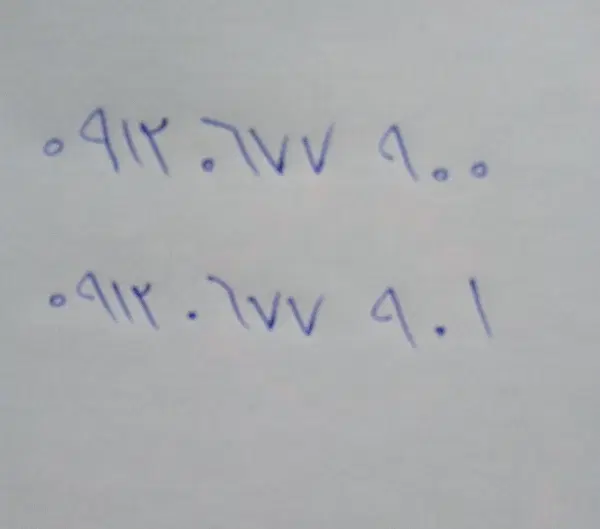 ۰۹۱۲ ۰۶۷۷ ۹۰۰
۰۹۱۲ ۰۶۷۷ ۹۰۱